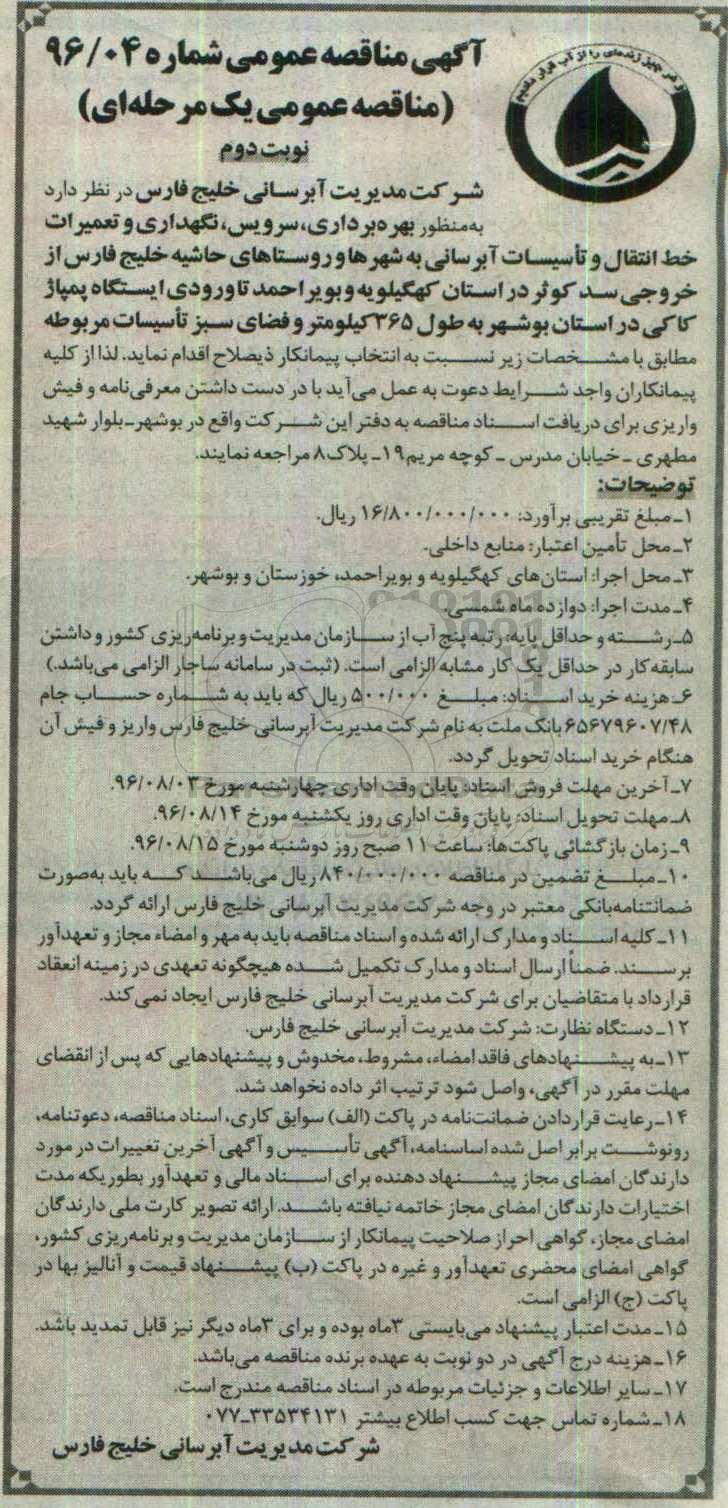 و هر چیز زنده‌ای را از آب قرار دادیم
آگهی مناقصه عمومی شماره ۹۶/۰۴
(مناقصه عمومی یک مرحله‌ای)
نوبت دوم
شرکت مدیریت آبرسانی خلیج فارس در نظر دارد
به‌منظور بهره‌برداری، سرویس، نگهداری و تعمیرات
خط انتقال و تأسیسات آبرسانی به شهرها و روستاهای حاشیه خلیج فارس از
خروجی سد کوثر در استان کهگیلویه و بویراحمد تا ورودی ایستگاه پمپاژ
کاکی در استان بوشهر به طول ۳۶۵کیلومتر و فضای سبز تأسیسات مربوطه
مطابق با مشخصات زیر نسبت به انتخاب پیمانکار ذیصلاح اقدام نماید. لذا از کلیه
پیمانکاران واجد شرایط دعوت به عمل می‌آید با در دست داشتن معرفی‌نامه و فیش
واریزی برای دریافت اسناد مناقصه به دفتر این شرکت واقع در بوشهر ـ بلوار شهید
مطهری ـ خیابان مدرس ـ کوچه مریم۱۹ـ پلاک۸ مراجعه نمایند.
توضیحات:
۱ـ مبلغ تقریبی برآورد: ۱۶/۸۰۰/۰۰۰/۰۰۰ ریال.
۲ـ محل تأمین اعتبار: منابع داخلی.
۳ـ محل اجرا: استان‌های کهگیلویه و بویراحمد، خوزستان و بوشهر.
۴ـ مدت اجرا: دوازده ماه شمسی.
۵ـ رشته و حداقل پایه: رتبه پنج آب از سازمان مدیریت و برنامه‌ریزی کشور و داشتن
سابقه کار در حداقل یک کار مشابه الزامی است. (ثبت در سامانه ساجار الزامی می‌باشد.)
۶ـ هزینه خرید اسناد: مبلغ ۵۰۰/۰۰۰ ریال که باید به شماره حساب جام
۶۵۶۷۹۶۰۷/۴۸ بانک ملت به نام شرکت مدیریت آبرسانی خلیج فارس واریز و فیش آن
هنگام خرید اسناد تحویل گردد.
۷ـ آخرین مهلت فروش اسناد: پایان وقت اداری چهارشنبه مورخ ۹۶/۰۸/۰۳.
۸ـ مهلت تحویل اسناد: پایان وقت اداری روز یکشنبه مورخ ۹۶/۰۸/۱۴.
۹ـ زمان بازگشائی پاکت‌ها: ساعت ۱۱ صبح روز دوشنبه مورخ ۹۶/۰۸/۱۵.
۱۰ـ مبلغ تضمین در مناقصه ۸۴۰/۰۰۰/۰۰۰ ریال می‌باشد که باید به‌صورت
ضمانتنامه‌بانکی معتبر در وجه شرکت مدیریت آبرسانی خلیج فارس ارائه گردد.
۱۱ـ کلیه اسناد و مدارک ارائه شده و اسناد مناقصه باید به مهر و امضاء مجاز و تعهدآور
برسند. ضمناً ارسال اسناد و مدارک تکمیل شده هیچگونه تعهدی در زمینه انعقاد
قرارداد با متقاضیان برای شرکت مدیریت آبرسانی خلیج فارس ایجاد نمی‌کند.
۱۲ـ دستگاه نظارت: شرکت مدیریت آبرسانی خلیج فارس.
۱۳ـ به پیشنهادهای فاقد امضاء، مشروط، مخدوش و پیشنهادهایی که پس از انقضای
مهلت مقرر در آگهی، واصل شود ترتیب اثر داده نخواهد شد.
۱۴ـ رعایت قراردادن ضمانت‌نامه در پاکت (الف) سوابق کاری، اسناد مناقصه، دعوتنامه،
رونوشت برابر اصل شده اساسنامه، آگهی تأسیس و آگهی آخرین تغییرات در مورد
دارندگان امضای مجاز پیشنهاد دهنده برای اسناد مالی و تعهدآور بطوریکه مدت
اختیارات دارندگان امضای مجاز خاتمه نیافته باشد. ارائه تصویر کارت ملی دارندگان
امضای مجاز، گواهی احراز صلاحیت پیمانکار از سازمان مدیریت و برنامه‌ریزی کشور،
گواهی امضای محضری تعهدآور و غیره در پاکت (ب) پیشنهاد قیمت و آنالیز بها در
پاکت (ج) الزامی است.
۱۵ـ مدت اعتبار پیشنهاد می‌بایستی ۳ماه بوده و برای ۳ماه دیگر نیز قابل تمدید باشد.
۱۶ـ هزینه درج آگهی در دو نوبت به عهده برنده مناقصه می‌باشد.
۱۷ـ سایر اطلاعات و جزئیات مربوطه در اسناد مناقصه مندرج است.
۱۸ـ شماره تماس جهت کسب اطلاع بیشتر ۳۳۵۳۴۱۳۱ـ۰۷۷
شرکت مدیریت آبرسانی خلیج فارس